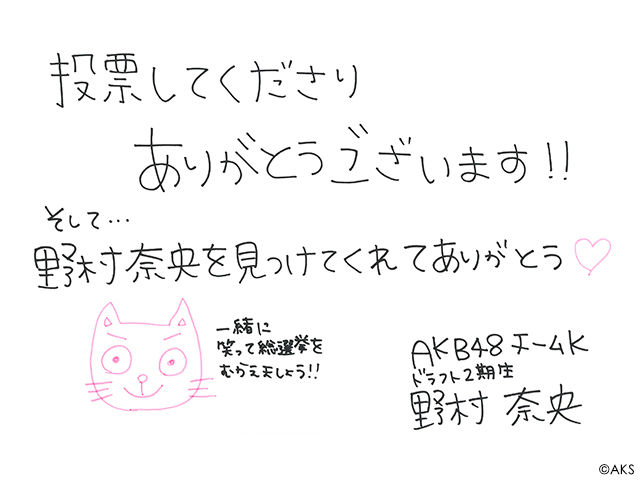 投票してくださり
ありがとうございます!!
そして…
野村奈央を見つけてくれてありがとう♡
一緒に
笑って総選挙を
むかえましょう!!
AKB48 チームK
ドラフト2期生
野村 奈央
©AKS